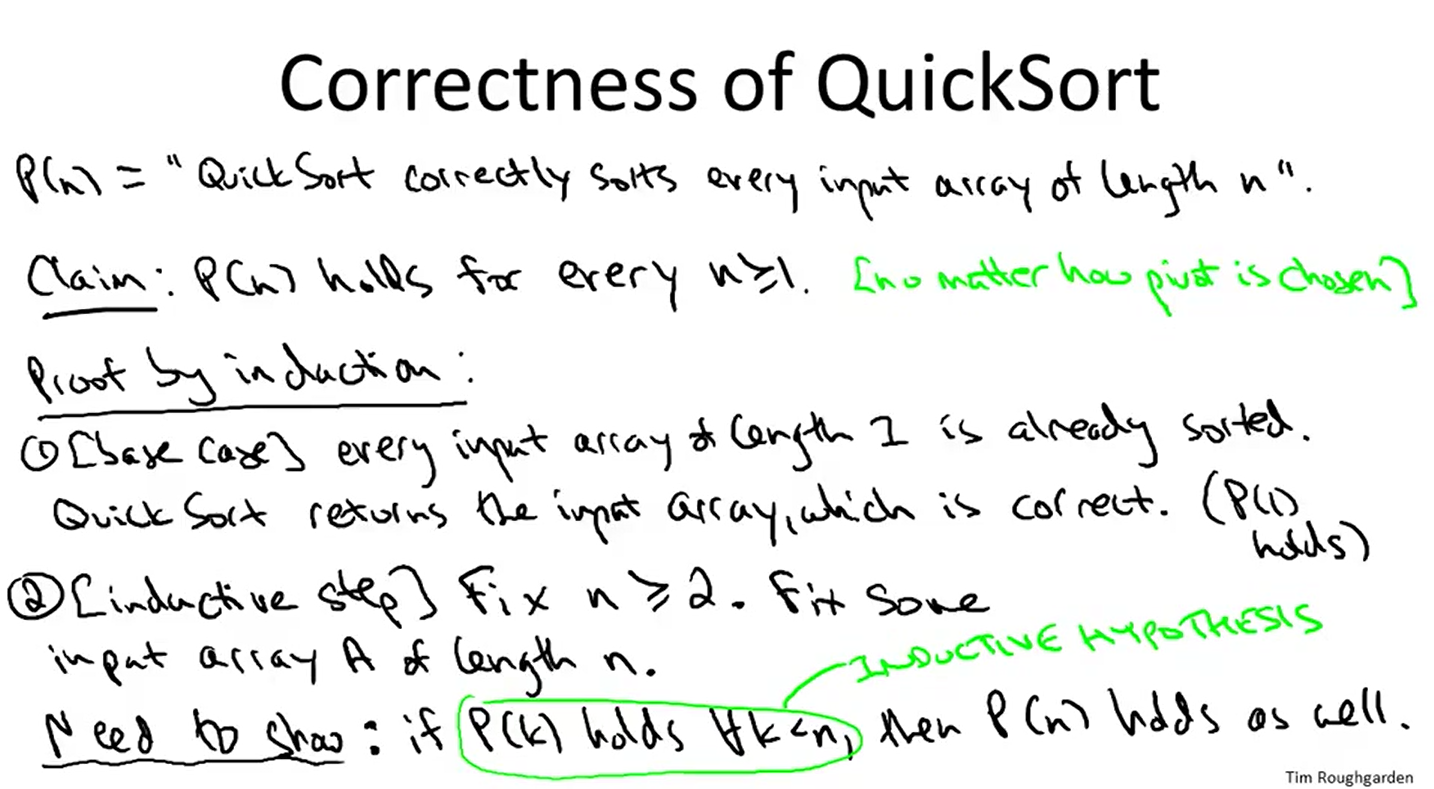 Correctness of QuickSort
P(n) = "QuickSort correctly sorts every input array of length n".
Claim: P(n) holds for every n≥1. [no matter how pivot is chosen]
Proof by induction:
① [base case] every input array of length 1 is already sorted.
QuickSort returns the input array, which is correct. (P(1)
holds)
② [inductive step] Fix n ≥ 2. Fix some
input array A of length n.
INDUCTIVE HYPOTHESIS
Need to show: if P(k) holds ∀k<n, then P(n) holds as well.
Tim Roughgarden